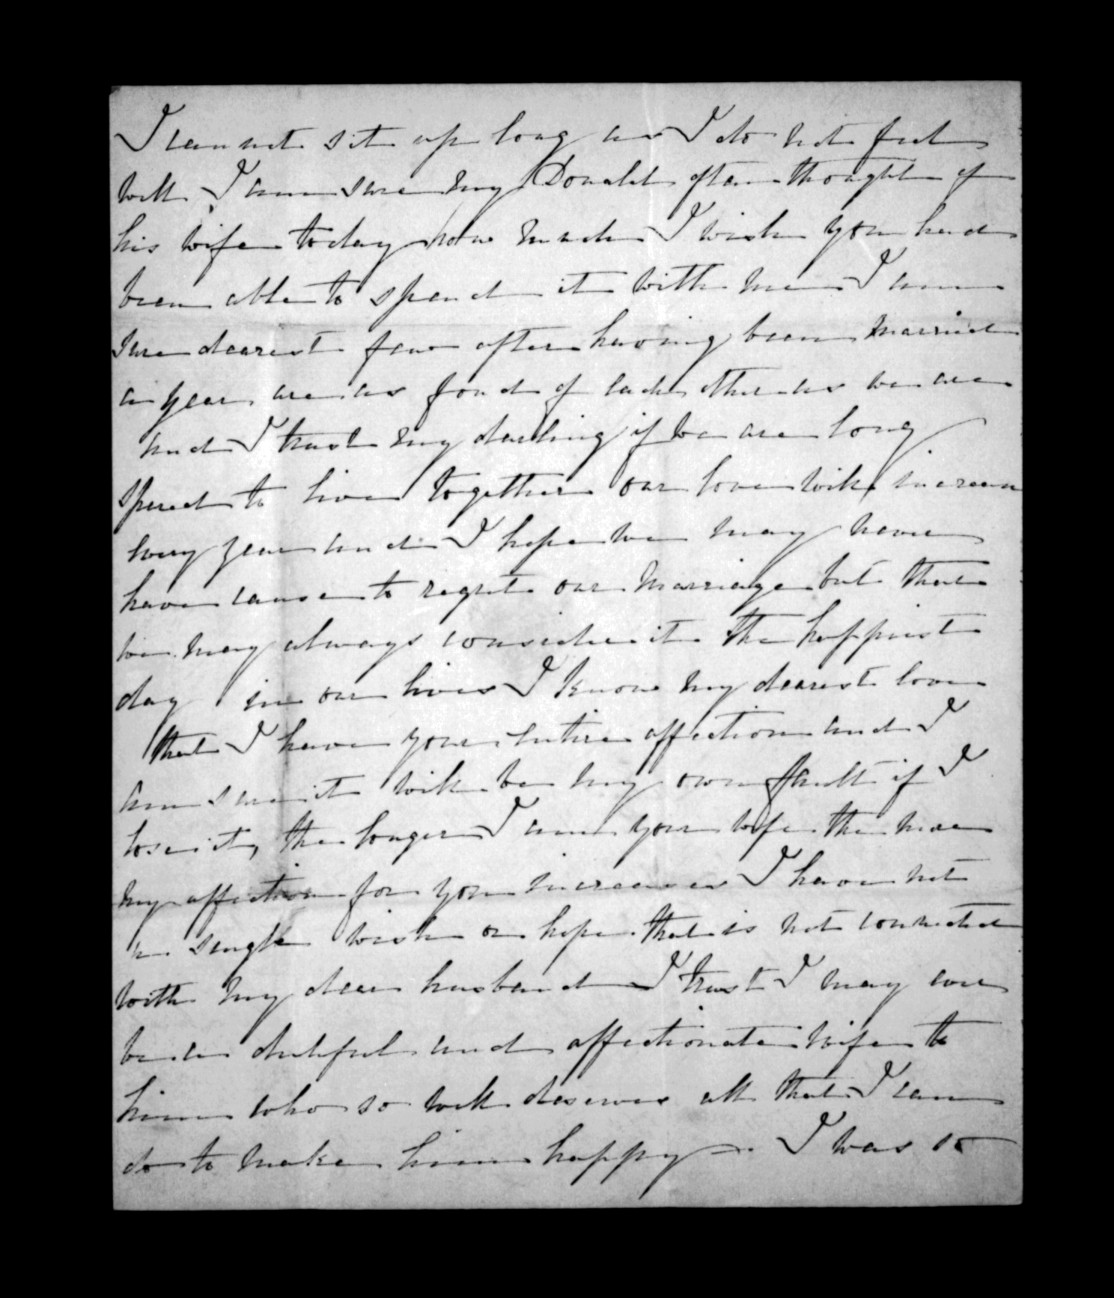 I can not sit up long as I do not feel
well I am sure my Donald often thought of
his wife today how much I wish you had
been able to spend it with me I am
sure dearest few after having been married
a year are as fond of each other as we are
and I trust my darling if we are long
spared to live together our love will increase
every year and I hope we may never
have cause to regret our marriage but that
we may always consider it the happiest
day in our lives I know my dearest love
that I have your entire affection and I
am sure it will be my own fault if I
lose it, the longer I am your wife the more
my affection for you increases I have not
a single wish or hope that is not connected
with my dear husband I trust I may ever
be a dutiful and affectionate wife to
him who so well deserves all that I can
do to make him happy. I was so